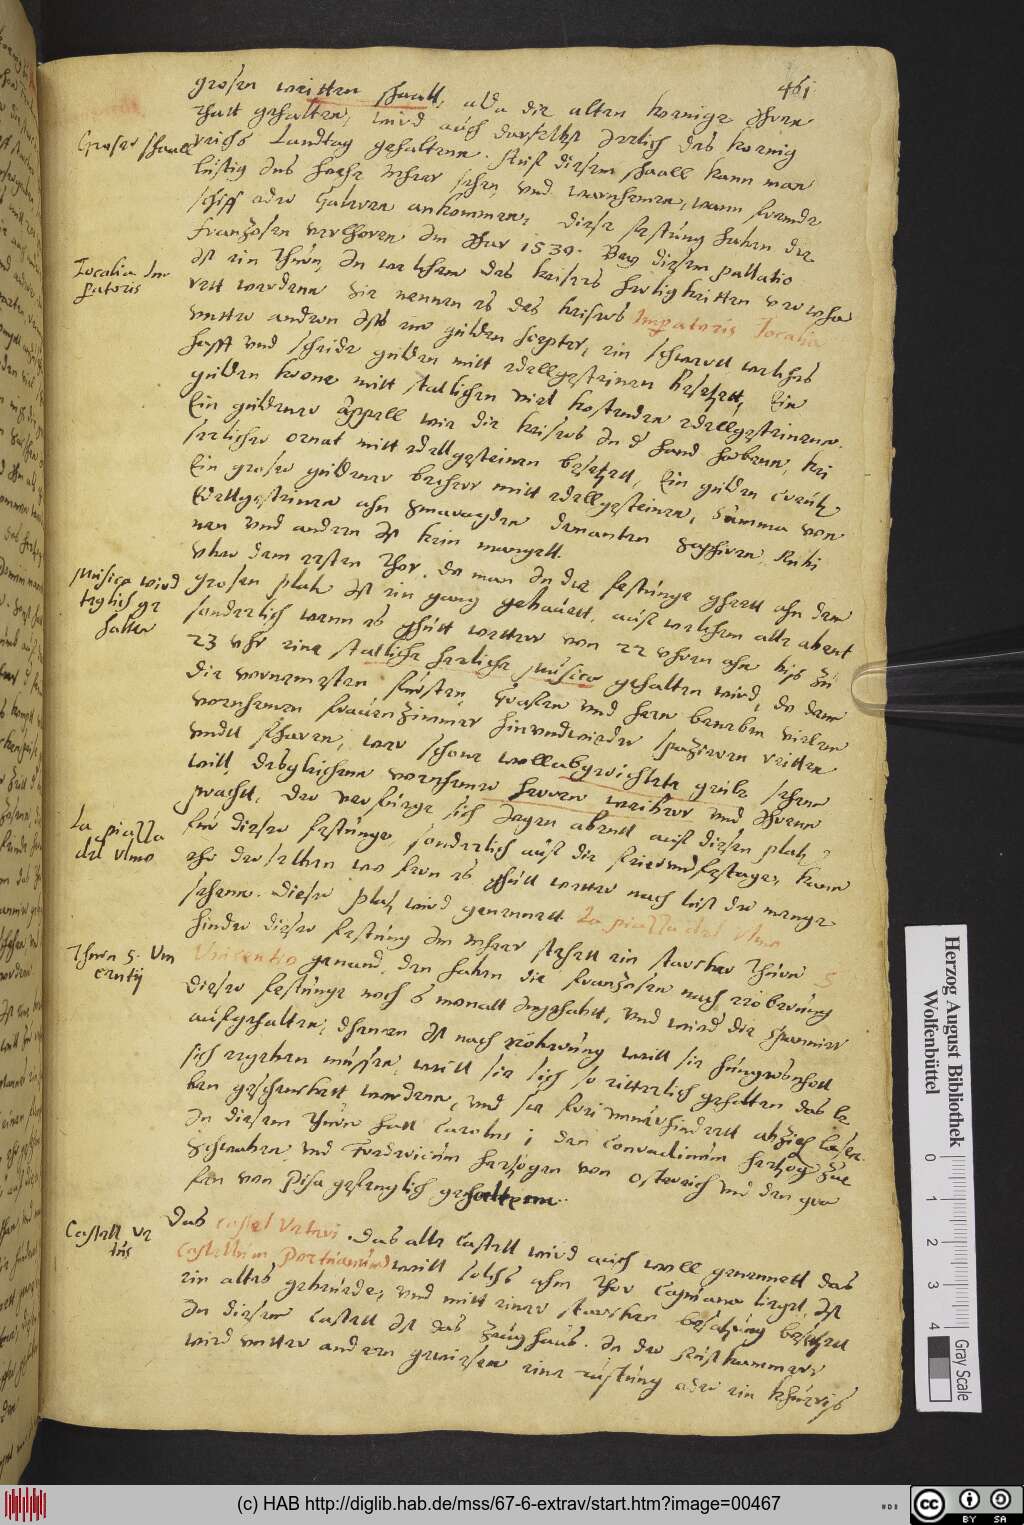 461
grosen weitten Shaall, alda die alten koenige Ihren
Thatt gehalten, wird auch daselbst Jerlich des koenig
Groser Shaall
reichs Landtag gehaltenn. Auß diesem Shaall kann man
lüstig das hoche Mheer sehen, vnd warnhemen, wann fremde
schiff oder Galeren ankommen, diese festung haben die
Franzosen verlhoren Im Jhar 1530. Bey diesem pallatio
Jocalia Im
peratoris
Ist ein Thurn, In welchem des keisers herligkeitten verwha
rett werdenn Sie nennen es des keisers Imperatoris Jocalia
vnter andern Ist ein gulden scepter, ein schwertt welches
hefft vnd scheide gulden mitt edellgesteinen besetzett, Ein
gulden krone mitt stattlichen viel kostenden edellgesteinenn.
Ein guldener appell wie die keisers In d hand habenn, kei
serlicher ornat mitt edellgesteinen besetzett, Ein gulden creutz
Ein groser guldener becherr mitt edellgesteinen, Summa von
Edellgesteinen ahn Smaragden demanten Saphiren, Rubi
nen vnd andern Ist kein mangell
vber dem ersten Thor, do man In die festunge ghett ahn dem
Musica wird
teglich ge
halten
grosen platz Ist ein gang gehauett, auß welchem alle abent
sonderlich wann es ghutt wetter von 22 vhren ahn biß zu
23 vhr eine stattliche herliche Musica gehalten wird, do dann
die vornemesten fürsten, Grafen vnd hern beneben vielen
vornhemen frauenzimmer hinvndwieder spazieren reitten
vndt fharen, wer schone wollabgerichtete geule sehenn
will, desgleichenn vornheme herren weiber vnd Ihrenn
pracht, der verfüege sich Jegen abend auß diesen platz
La piazza
del Vlmo
für dieser festunge, sonderlich auß die frier vnd festage, kann
ehr derselben wo fern es ghutt wetter nach lust die menge
sehenn. Dieser platz wird genennett La piazza del Vlmo
hinder dieser festung Im Mheer stehett ein starcker Thurn S.
Thurn S. Vin
centij
Vincentio genand, den haben die Franzosen nach eroberung
dieser festunge noch 6 monatt Ingehabtt, vnd wird die Spannier
aufgehalten, dhenen Ist nach eroberung weill sie hungersnhott
sich ergeben mussen, weill sie sich so ritterlich gehalten das le
ben geschenckett wordenn, vnd sie frei vnuerhinderlt abzieh lasen.
In diesem Thurn hatt Carolus i den Conradinum herzog zue
Schwaben, vnd Fredericum herzogen von Osterich vnd den gra
fen von Pisa gefenglich gehaltenn.
Castell ve
tus
Das Castel Veteri. das alte Castell wird auch woll genennett das
Castellum Portuanum weill solchs ahm Thor Capuana lieget, Ist
ein altes gebeude, vnd mitt einer starcken besatzung besetzett
In diesem Castell Ist das Zeughaus. In der Rustkammerr
wird vnter andern gewiesen eine rustung oder ein khüriß
Herzog August Bibliothek
Wolfenbüttel
0 1 2 3 4
Gray Scale
(c) HAB http://diglib.hab.de/mss/67-6-extrav/start.htm?image=00467
cc BY SA